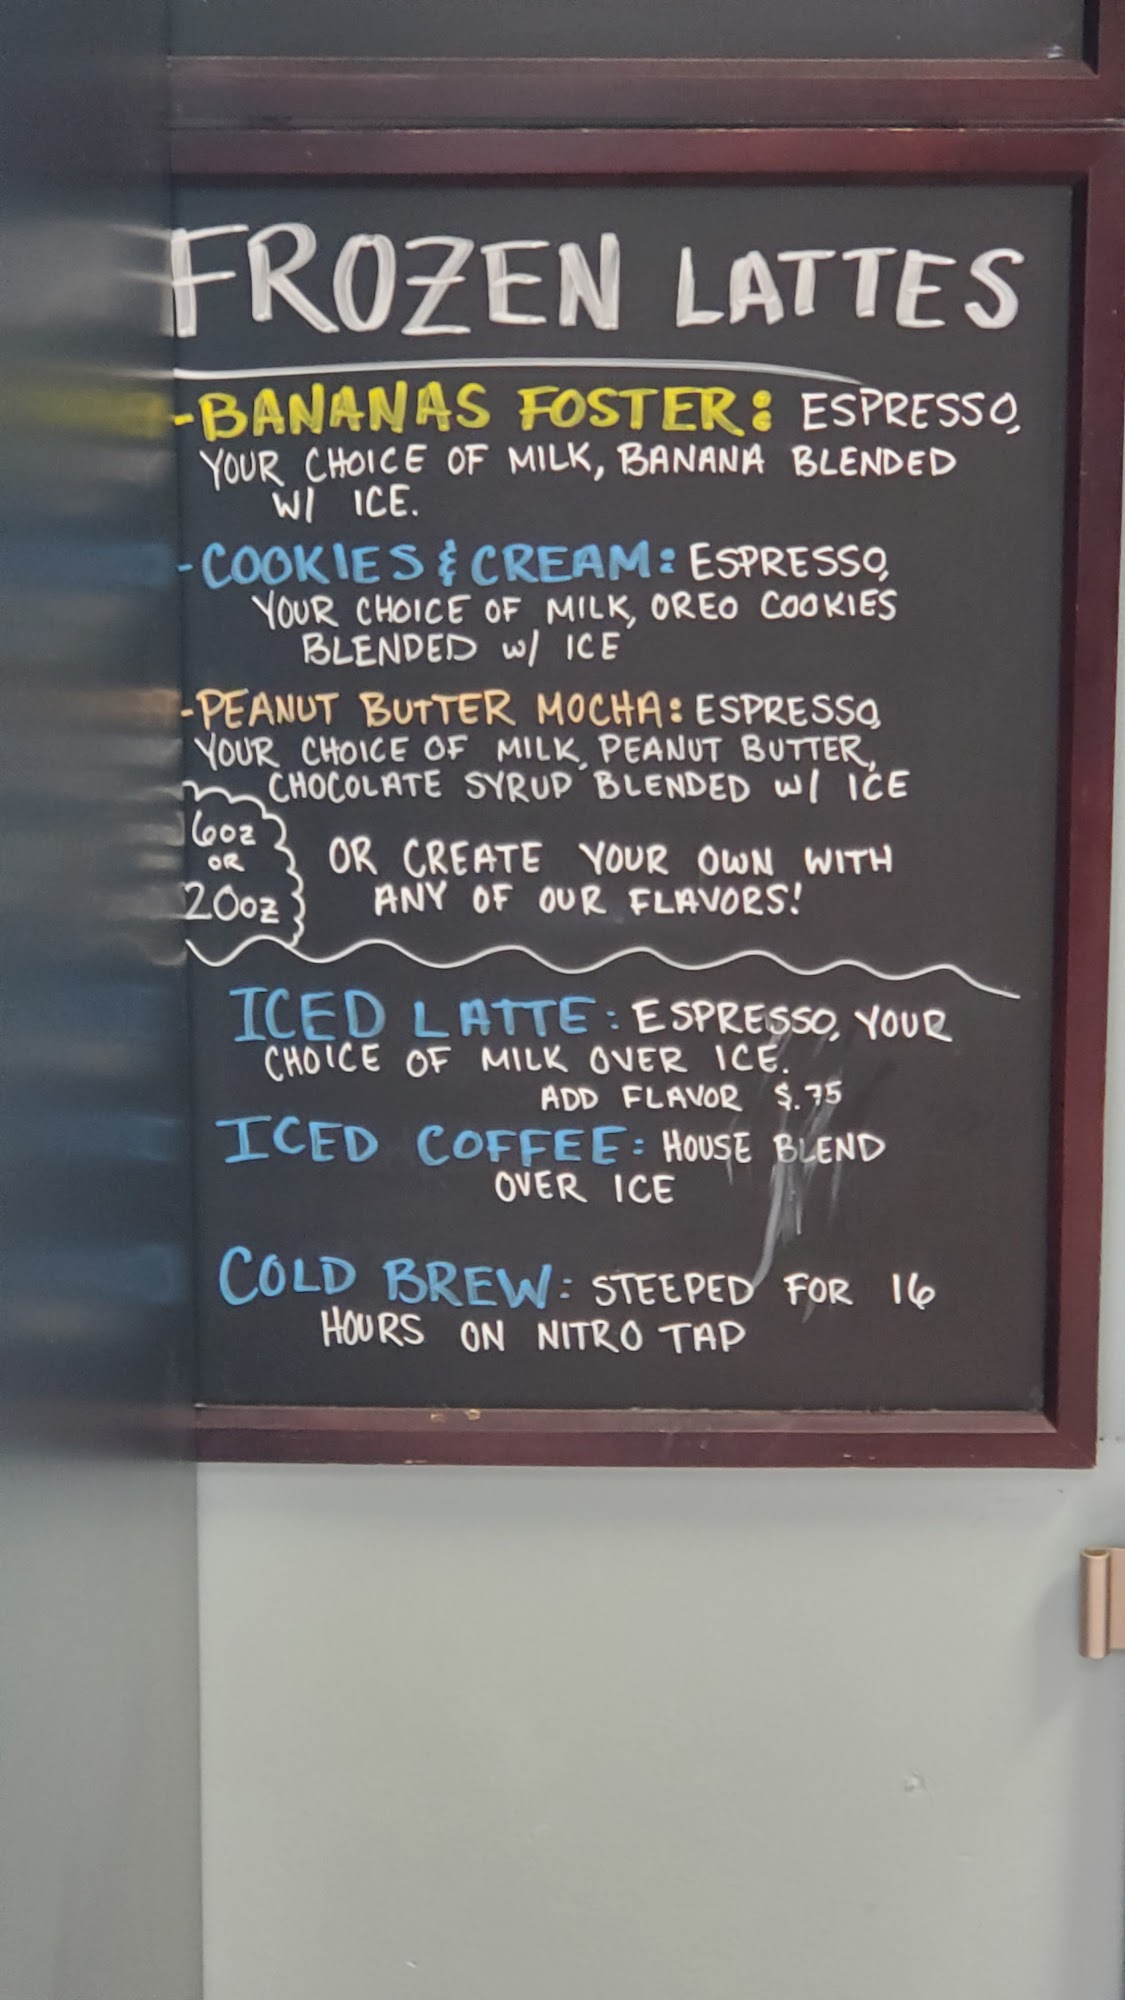 FROZEN LATTES
-BANANAS FOSTER: ESPRESSO,
YOUR CHOICE OF MILK, BANANA BLENDED
W/ ICE.
-COOKIES & CREAM: ESPRESSO,
YOUR CHOICE OF MILK, OREO COOKIES
BLENDED W/ ICE
-PEANUT BUTTER MOCHA: ESPRESSO,
YOUR CHOICE OF MILK, PEANUT BUTTER,
CHOCOLATE SYRUP BLENDED W/ ICE
OR
20oz
OR CREATE YOUR OWN WITH
ANY OF OUR FLAVORS!
ICED LATTE: ESPRESSO, YOUR
CHOICE OF MILK OVER ICE.
ADD FLAVOR $.75
ICED COFFEE: HOUSE BLEND
OVER ICE
COLD BREW: STEEPED FOR 16
HOURS ON NITRO TAP